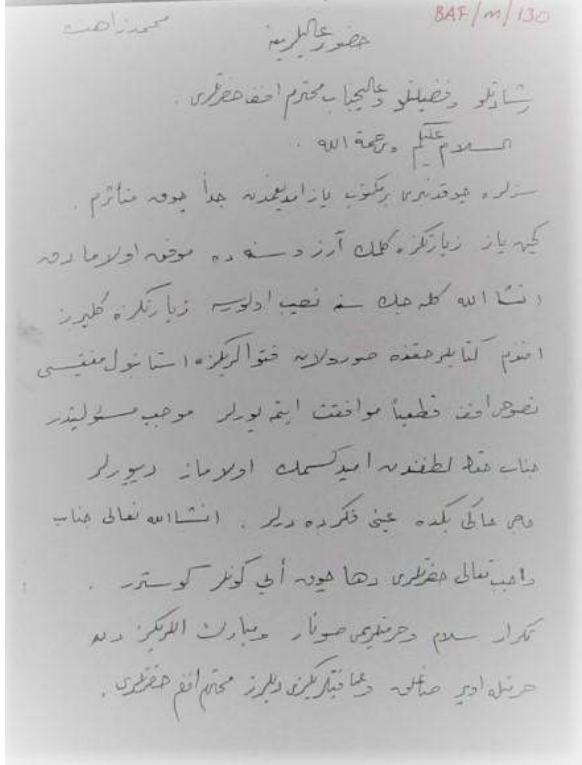 BAF/M/130
محمد زاهد
حضور عاليلرينه
رشادتلو وفضيلتلو وعاليجناب محترم افندم حضرتلرى .
السلام عليكم ورحمة الله .
سزلره چوقدنبرى بر مكتوب يازامديغمدن جداً چوق متأثرم .
كچن ياز زيارتكزه كلمك آرزوسنه ده موفق اولامادق
انشاالله كله جك سنه نصيب اولورسه زيارتكزه كليرز
افندم كتابلر حقنده صورولان فتواكزه استانبول مفتيسى
نصوحى افندى قطعياً موافقت ايتمه يورلر موجب مسئوليتدر
جناب حقك لطفندن اميد كسمك اولاماز ديورلر
عاكف بكده عينى فكرده درلر . انشاالله تعالى جناب
واجب تعالى حضرتلرى دها چوق أيى كونلر كوسترر .
تكرار سلام وحرمتلريمى صونار ومبارك اللريكزدن
حرمتله اوپر صاغلق وعافيتلريكزى ديلرز محترم افندم حضرتلرى .